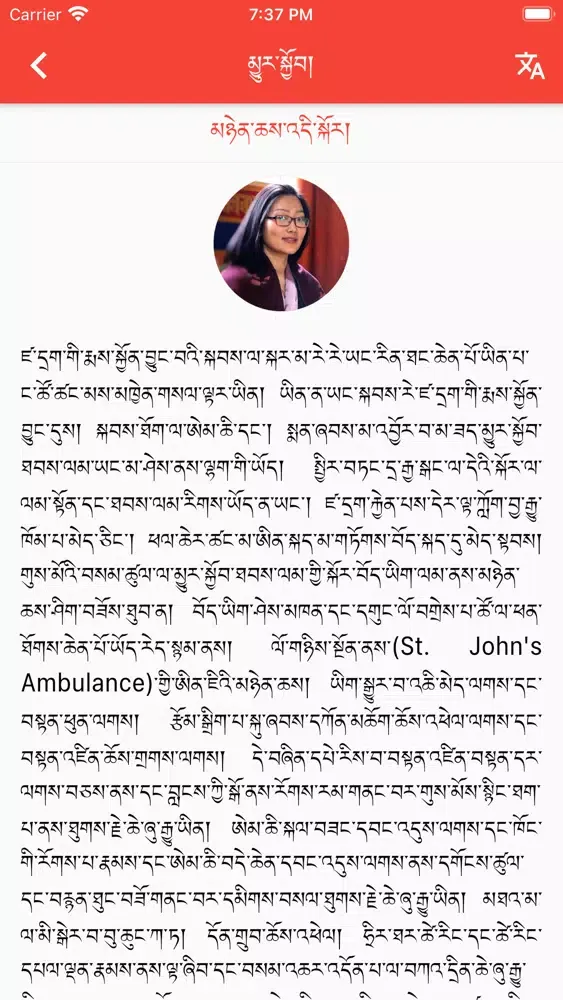 Carrier 7:37 PM
མྱུར་སྐྱོབ།
文A
མཉེན་ཆས་འདི་སྐོར།
ཛ་དྲག་གི་རྨས་སྐྱོན་བྱུང་བའི་སྐབས་ལ་སྐར་མ་རེ་རེ་ཡང་རིན་ཐང་ཆེན་པོ་ཡིན་པ་
ང་ཚོ་ཚང་མས་མཁྱེན་གསལ་ལྟར་ཡིན། ཡིན་ན་ཡང་སྐབས་རེ་ཛ་དྲག་གི་རྨས་སྐྱོན་
བྱུང་དུས། སྐབས་ཐོག་ལ་ཨེམ་ཆི་དང་། སྨན་ཞབས་མ་འབྱོར་བ་མ་ཟད་མྱུར་སྐྱོབ་
ཐབས་ལམ་ཡང་མ་ཤེས་ནས་ལྷག་གི་ཡོད། སྤྱིར་བཏང་དྲ་རྒྱ་སྒང་ལ་དེའི་སྐོར་ལ་
ལམ་སྟོན་དང་ཐབས་ལམ་རིགས་ཡོད་ན་ཡང་། ཛ་དྲག་རྐྱེན་པས་དེར་ལྟ་ཀློག་བྱ་རྒྱུ་
ཁོམ་པ་མེད་ཅིང་། ཕལ་ཆེར་ཚང་མ་ཨིན་སྐད་མ་གཏོགས་བོད་སྐད་དུ་མེད་སྟབས།
གུས་མོའི་བསམ་ཚུལ་ལ་མྱུར་སྐྱོབ་ཐབས་ལམ་གྱི་སྐོར་བོད་ཡིག་ལམ་ནས་མཉེན་
ཆས་ཤིག་བཟོས་ཐུབ་ན། བོད་ཡིག་ཤེས་མཁན་དང་དགུང་ལོ་བགྲེས་པ་ཚོ་ལ་ཕན་
ཐོགས་ཆེན་པོ་ཡོད་རེད་སྙམ་ནས། ལོ་གཉིས་སྔོན་ནས་(St. John's
Ambulance)གྱི་ཨིན་ཇིའི་མཉེན་ཆས། ཡིག་སྒྱུར་བ་འཆི་མེད་ལགས་དང་
བསྟན་ཕུན་ལགས། རྩོམ་སྒྲིག་པ་སྐུ་ཞབས་དཀོན་མཆོག་ཆོས་འཕེལ་ལགས་དང་
བསྟན་འཛིན་ཆོས་གྲགས་ལགས། དེ་བཞིན་དཔེ་རིས་བ་བསྟན་འཛིན་བསྟན་དར་
ལགས་བཅས་ནས་དང་བླངས་ཀྱི་སྒོ་ནས་རོགས་རམ་གནང་བར་གུས་མོས་སྙིང་ཐག་
པ་ནས་ཐུགས་རྗེ་ཆེ་ཞུ་རྒྱུ་ཡིན། ཨེམ་ཆི་སྐལ་བཟང་དབང་འདུས་ལགས་དང་ཁོང་
གི་རོགས་པ་རྣམས་དང་ཨེམ་ཆི་བདེ་ཆེན་དབང་འདུས་ལགས་ནས་དགོངས་ཚུལ་
དང་བརྟན་ཐུང་བཟོ་གནང་བར་དམིགས་བསལ་ཐུགས་རྗེ་ཆེ་ཞུ་རྒྱུ་ཡིན། མཐའ་མ་
ལ་མི་སྒེར་བ་བུ་ཆུང་ཀ་ཏ། དོན་གྲུབ་ཆོས་འཕེལ། ཧྲིར་ཐར་ཚེ་རིང་དང་ཚེ་རིང་
དཔལ་ལྡན་རྣམས་ནས་ལྟ་ཞིབ་དང་བསམ་འཆར་འདོན་པ་ལ་བཀའ་དྲིན་ཆེ་ཞུ་རྒྱུ་